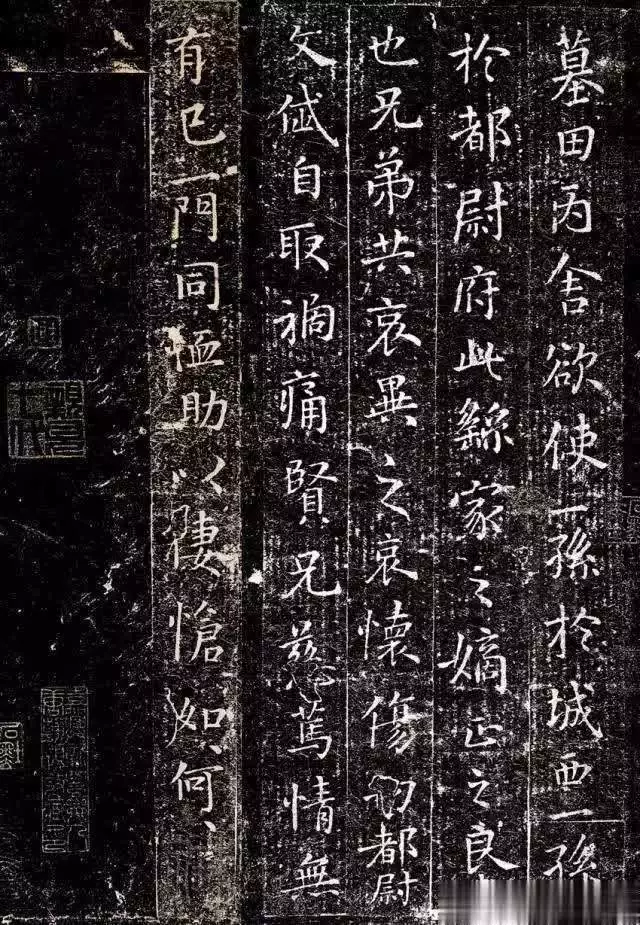 墓田丙舍欲使一孫於城西一孫
於都尉府此繇家之嫡正之良
也兄弟共哀異之哀懷傷切都尉
文岱自取禍痛賢兄慈篤情無
有已一門同恤助以悽愴如、何、